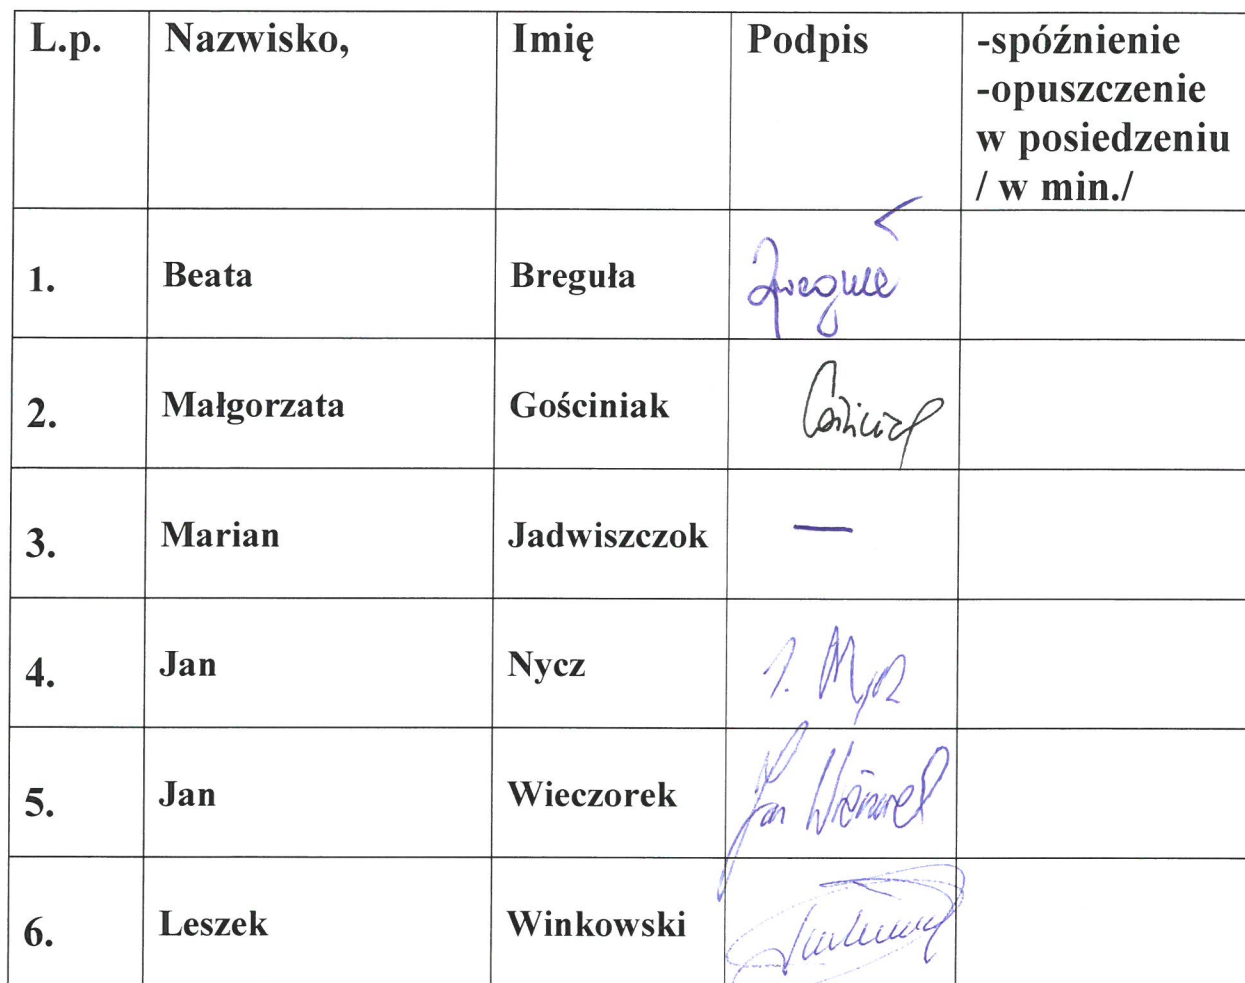 L.p. Nazwisko, Imię Podpis -spóźnienie
-opuszczenie
w posiedzeniu
/ w min./
1. Beata Breguła
2. Małgorzata Gościniak
3. Marian Jadwiszczok —
4. Jan Nycz J. Nycz
5. Jan Wieczorek Jan Wieczorek
6. Leszek Winkowski